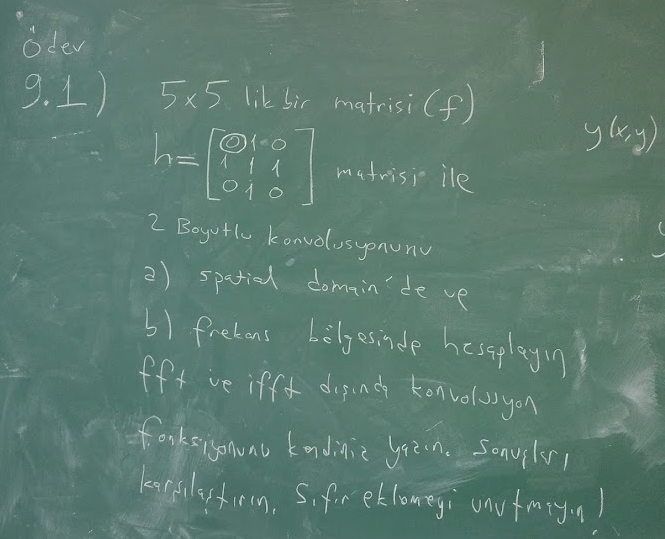 Ödev
9.1) 5x5 lik bir matrisi (f)
y(x,y)
h= [0 1 0
1 1 1
0 1 0] matrisi ile
2 Boyutlu konvolusyonunu
a) spatial domain'de ve
b) frekans bölgesinde hesaplayın
fft ve ifft dışında konvolusyon
fonksiyonunu kendiniz yazın. Sonuçları
karşılaştırın. Sıfır eklemeyi unutmayın!